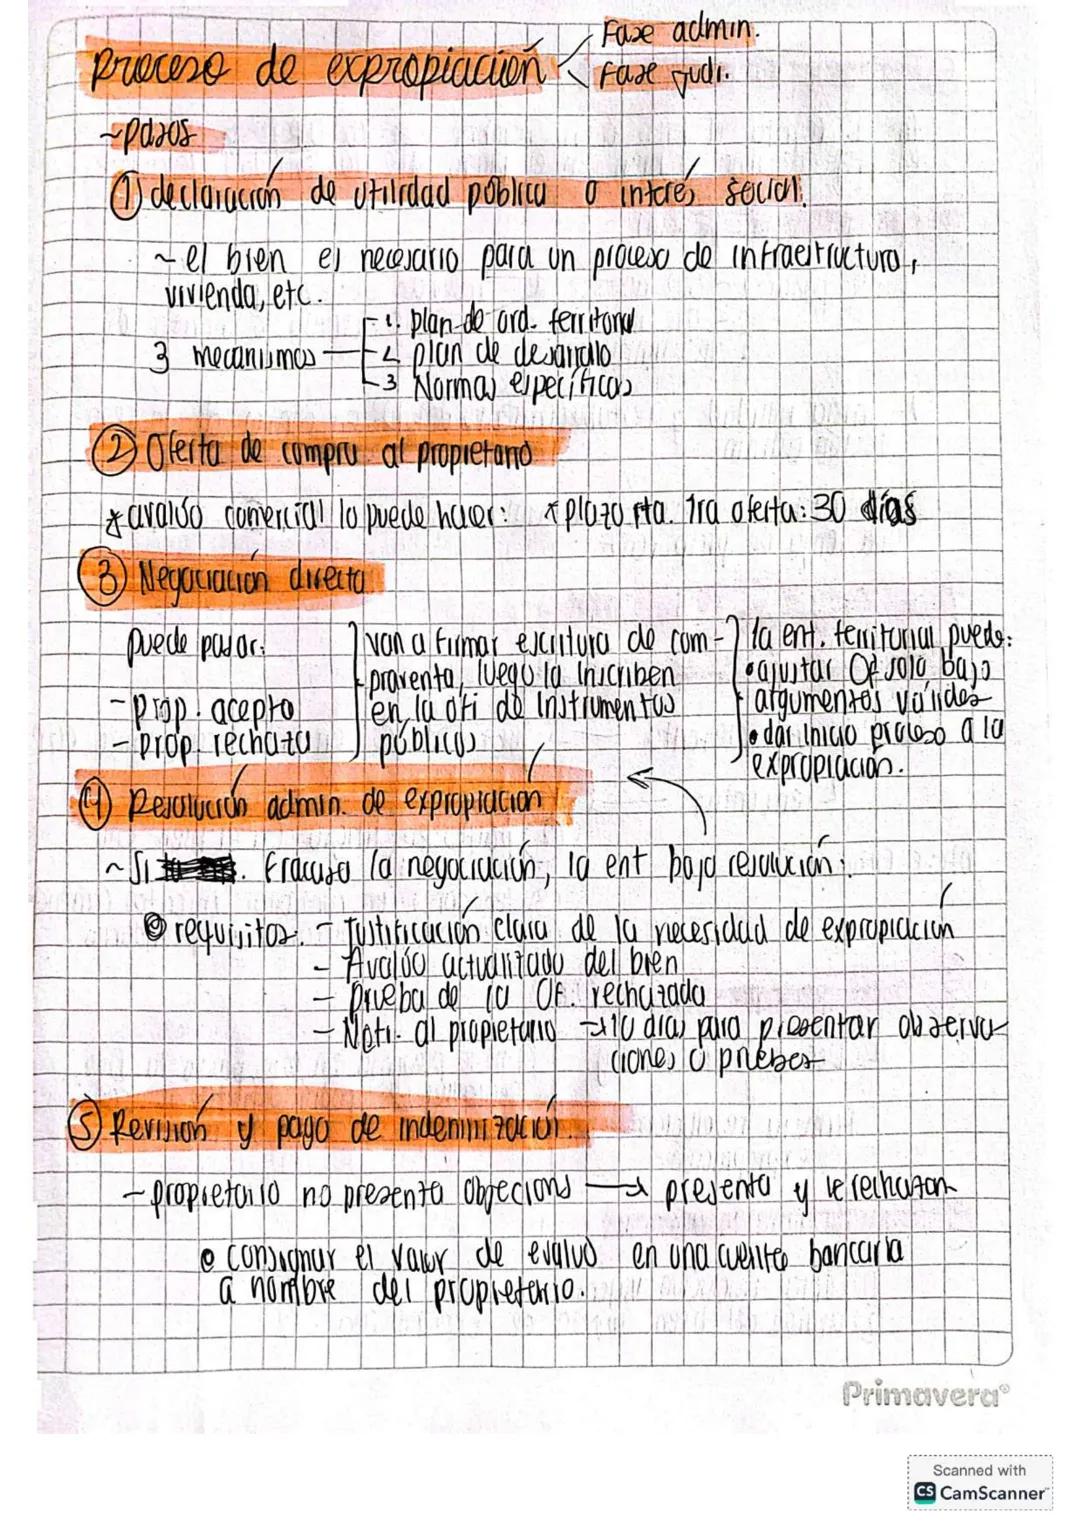 Proceso de expropiación
Fase admin.
Fase Judi.
~pasos
① declaración de utilidad pública o interés social.
~ el bien es necesario para un proceso de infraestructura,
vivienda, etc.
3 mecanismos
1. plan de ord. territorial
2 plan de desarrollo
3 Normas específicas
② Oferta de compra al propietario
* avalúo comercial lo puede hacer: * plazo rta. 1ra oferta: 30 días
③ Negociación directa
puede pasar:
- prop. acepta
- prop. rechaza
van a firmar escritura de com-
praventa, luego la inscriben
en la ofi de instrumentos
públicos
la ent. territorial puede:
• ajustar Of solo bajo
argumentos válidos
• dar inicio proceso a la
expropiación.
④ Resolución admin. de expropiación
~ Si . fracasa la negociación, la ent bajo resolución:
requisitos. - Justificación clara de la necesidad de expropiación
- Avalúo actualizado del bien
- prueba de la Of. rechazada
- Noti. al propietario → 10 días para presentar observa-
ciones o pruebas
⑤ Revisión y pago de indemnización.
- propietario no presenta objecions → presenta y le rechazan
consignar el valor de evaluo en una cuenta bancaria
a nombre del propietario.
Primavera®
Scanned with
CS CamScanner